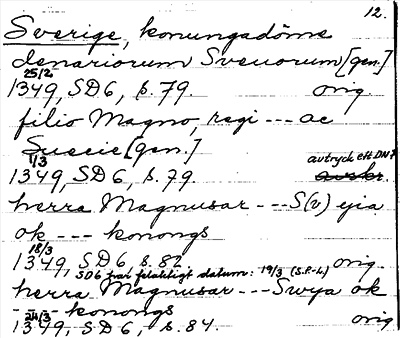 12.
Sverige, konungadöme
denariorum Sveuorum [gen.]
25/2
1349, SD 6, s. 79. orig.
filio Magno, regi --- ac
Suecie [gen.]
1/3 avtryck eft. DN 7
1349, SD 6, s. 79. avskr.
herra Magnusar --- S(v)eyia
ok --- konongs
18/3
1349, SD 6, s. 82. orig.
SD6 har felaktigt datum: 19/3 (S.P-L)
herra Magnusar --- Swya ok
--- konongs
24/3
1349, SD 6, s. 84. orig